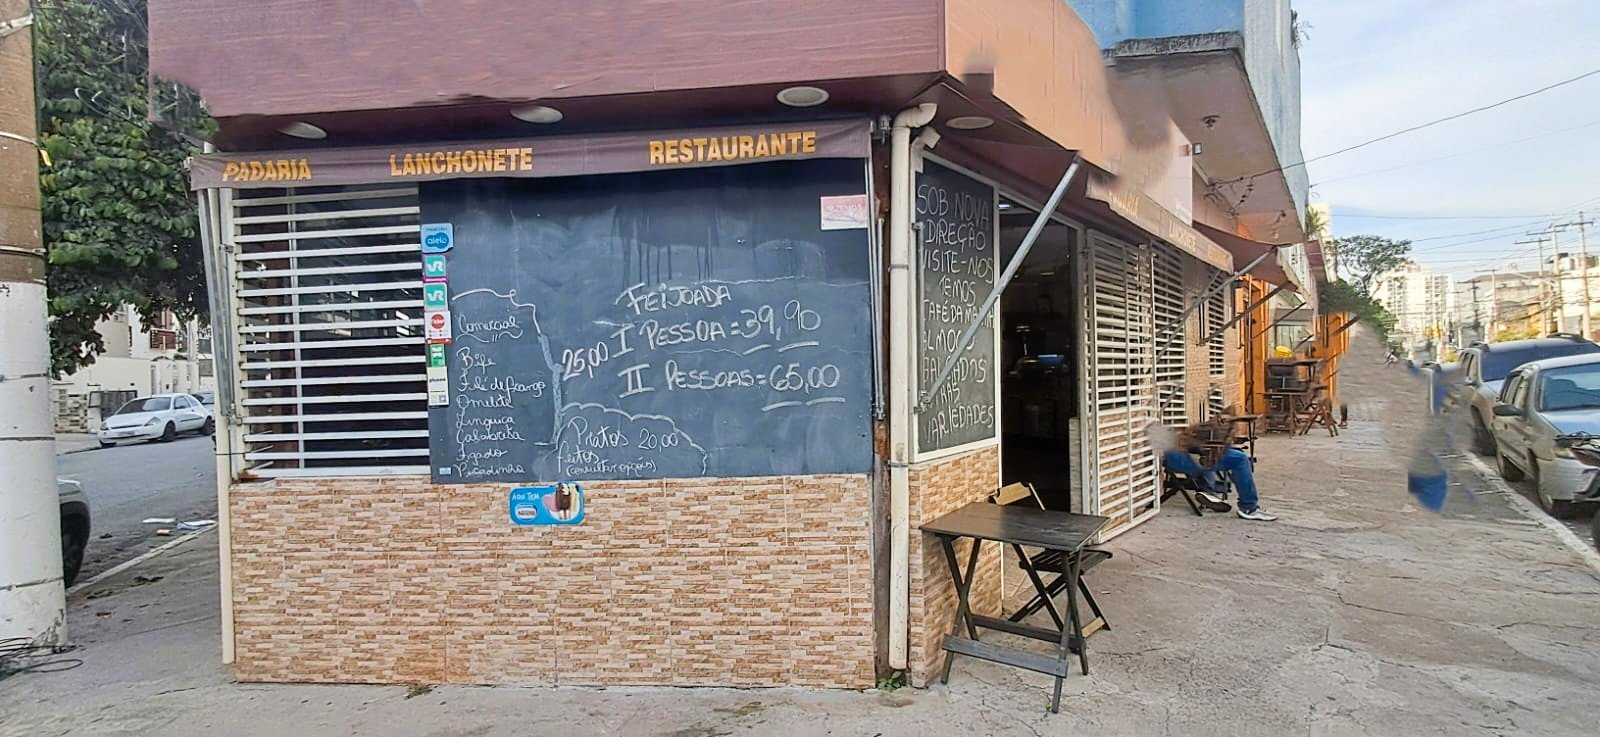 PADARIA LANCHONETE RESTAURANTE
alelo
VR
VR
FEIJOADA
I PESSOA = 39,90
II PESSOAS = 65,00
Comercial
25,00
Bife
Filé de frango
Omelete
Linguiça
Calabresa
Figado
Pratos 20,00
feitos
(consultar opções)
AQUI TEM
SOB NOVA
DIREÇÃO
VISITE-NOS
TEMOS
CAFÉ DA MANHÃ
VARIEDADES
LANCHONETE